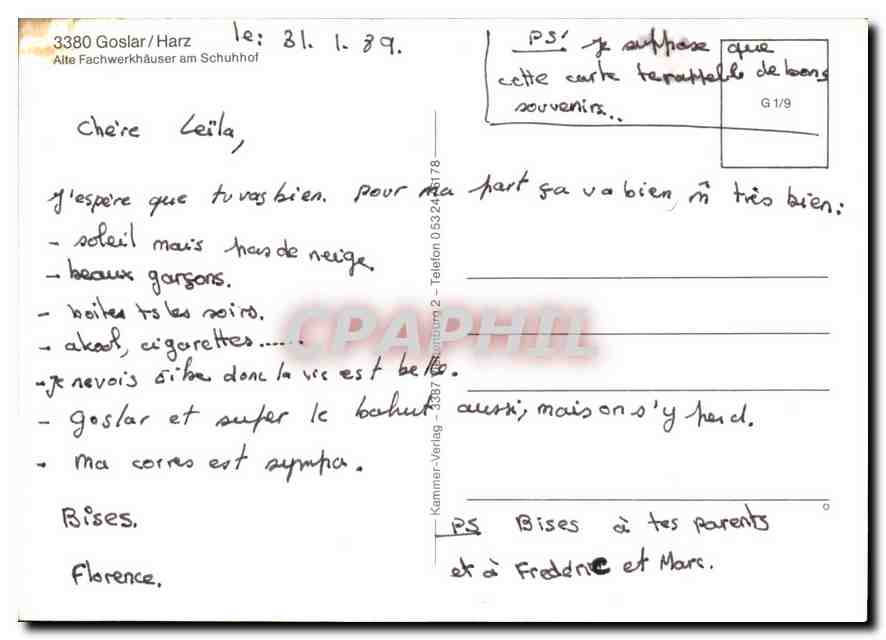 3380 Goslar/Harz
Alte Fachwerkhäuser am Schuhhof
le: 31. 1. 89.
PS! je suppose que
cette carte te rappelle de bons
souvenirs..
G 1/9
Chère Leïla,
J'espère que tu vas bien. Pour ma part ça va bien, m̂ très bien:
- soleil mais pas de neige.
- beaux garçons.
- boîtes ts les soirs.
- akool, cigarettes......
- je revois donc la vie est belle.
- goslar et super le bahut aussi, mais on s'y perd.
- ma corres est sympa.
Bises.
Florence.
PS Bises à tes parents
et à Frédéric et Marc.
Kammer-Verlag - 3387 2 - Telefon 05324
CPAPHIL